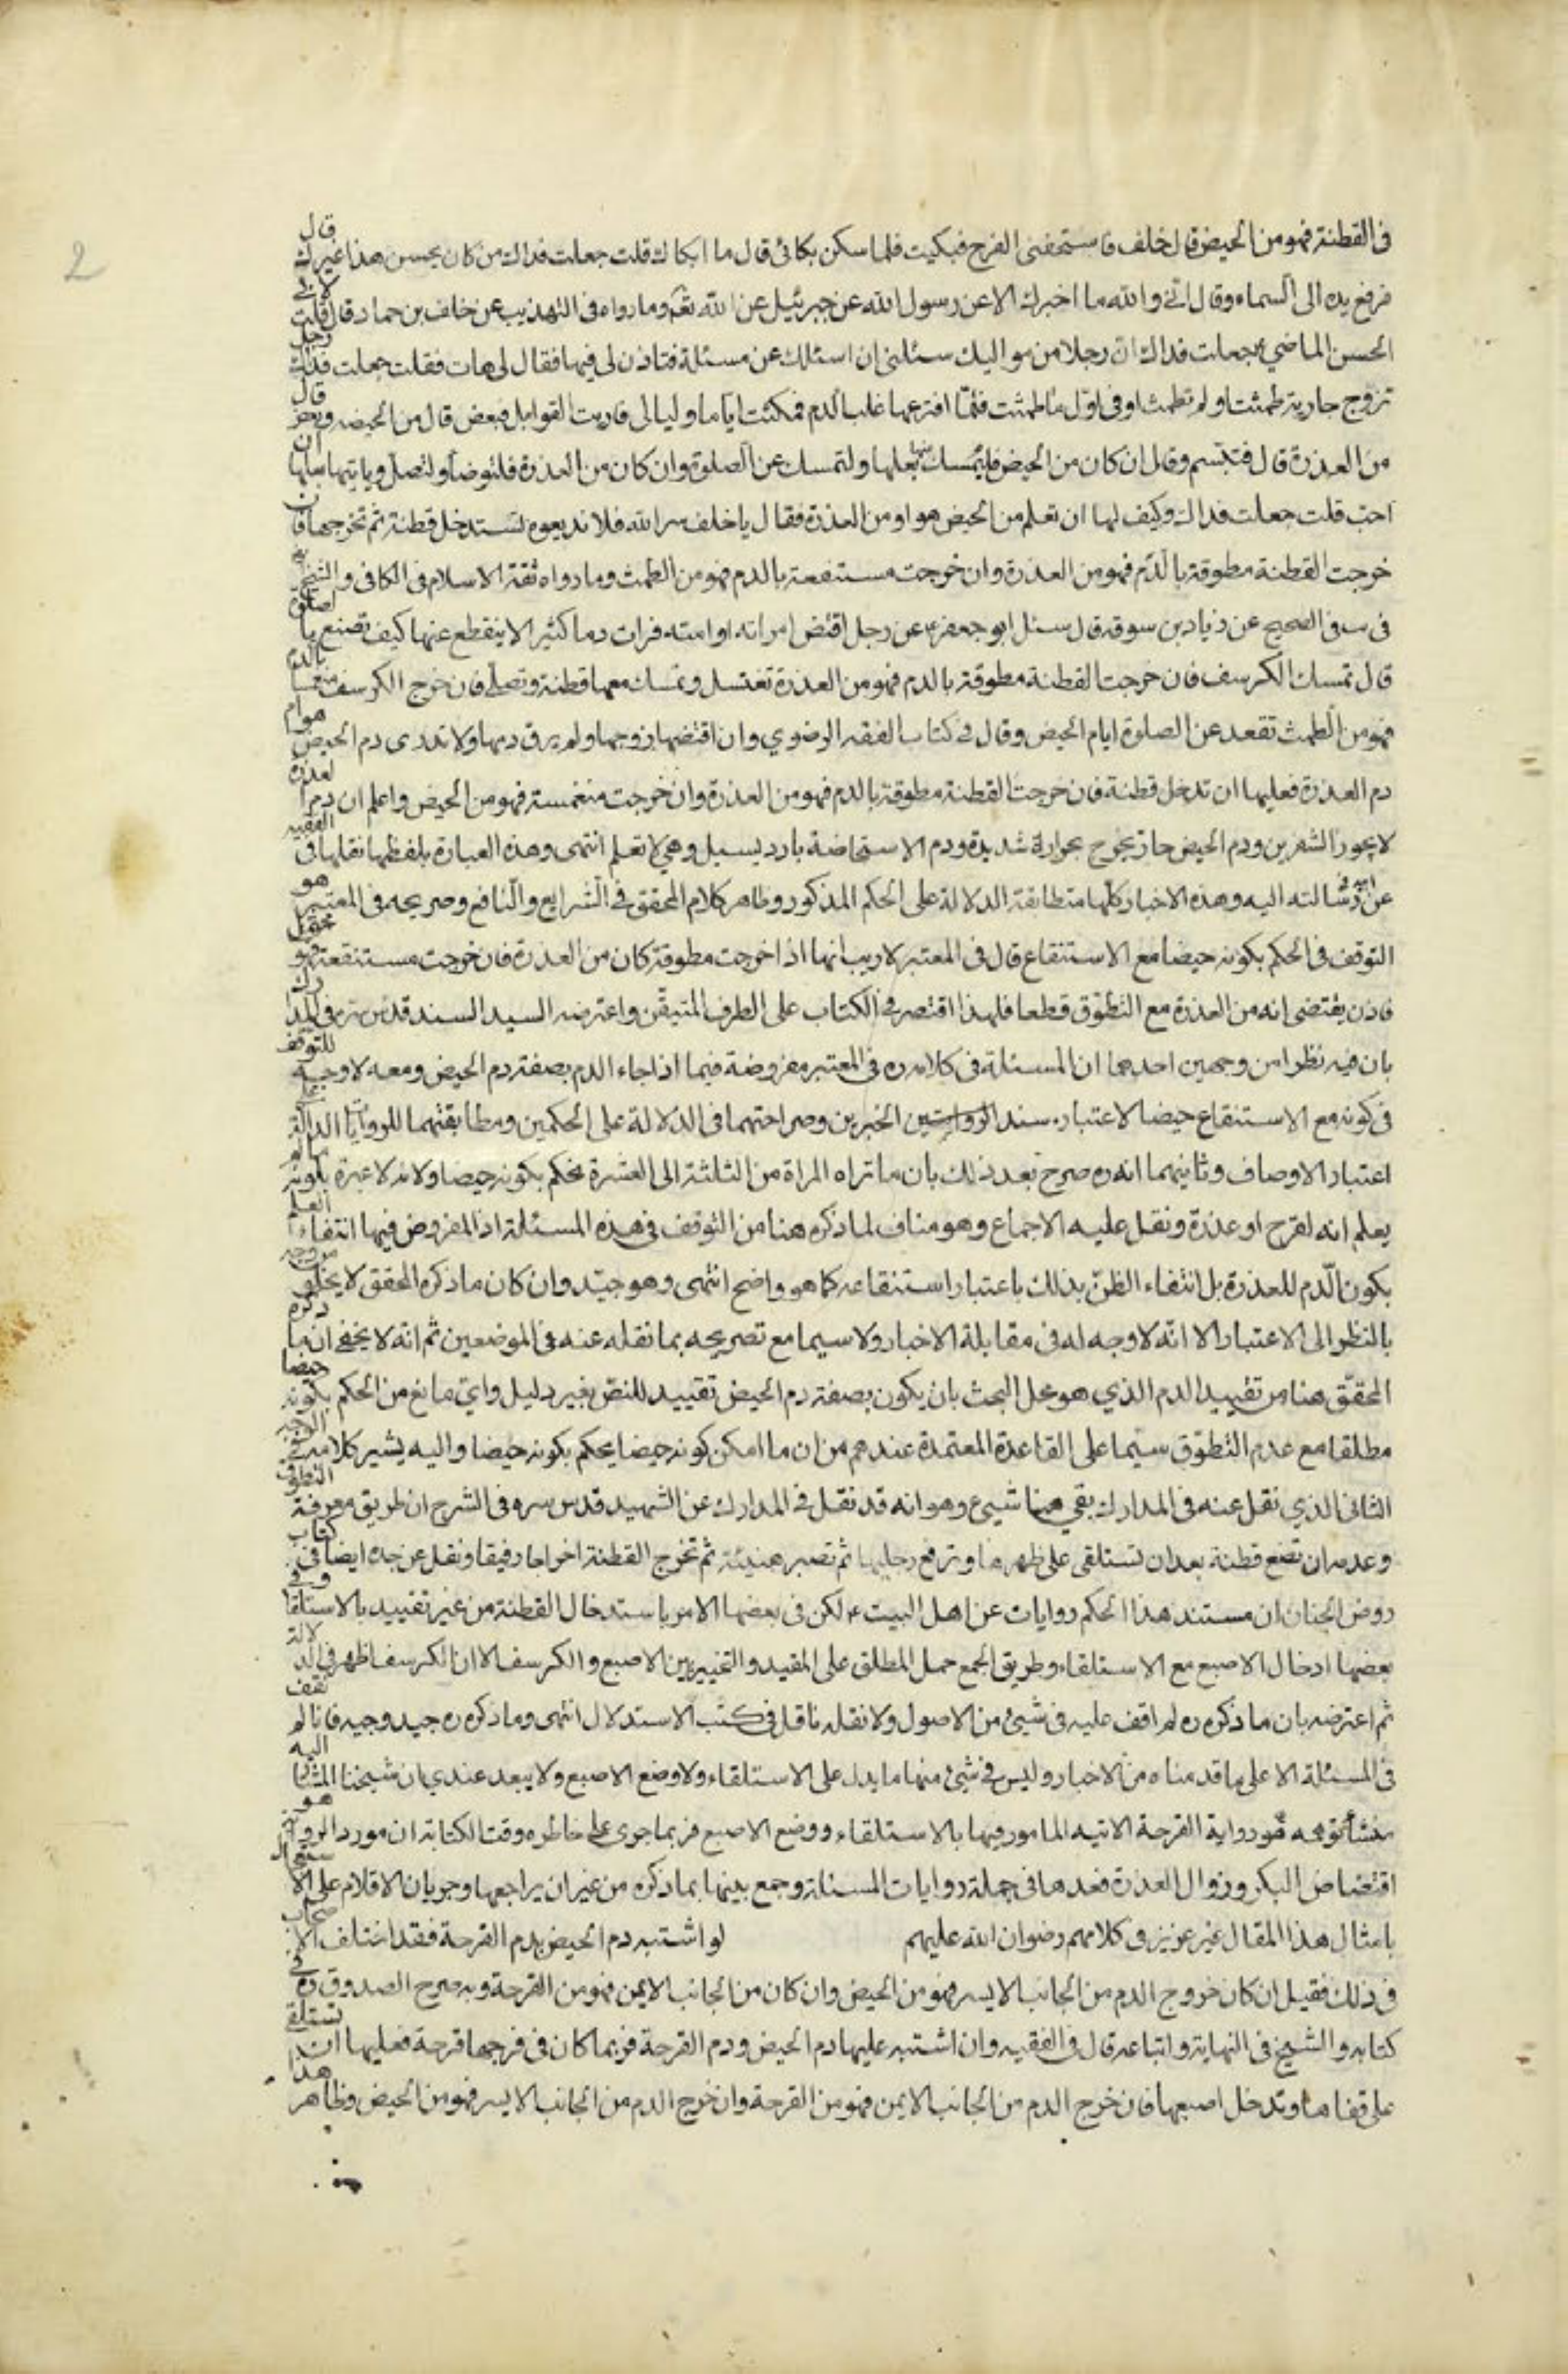 فى القطنة فهو من الحيض قال خلف فاستحفنى الفرح فبكيت فلما سكن بكائى قال ما ابكاك قلت جعلت فداك من كان يحسن هذا غيرك قال
فرفع يده الى السماء وقال انى والله ما اخبرك الا عن رسول الله عن جبرئيل عن الله تعم وما رواه فى التهذيب عن خلف بن حماد قال قلت لابى
الحسن الماضي ع جعلت فداك ان رجلا من مواليك سئلنى ان اسئلك عن مسئلة فتاذن لى فيها فقال لى هات فقلت جعلت فداك رجل
تزوج جارية طمثت او لم تطمث او فى اول ما طمثت فلما افترعها غلب الدم فمكثت اياما وليالى فاريت القوابل فبعض قال من الحيضه وبعض قال
من العذرة قال فتبسم وقال ان كان من الحيض فليمسك عنها بعلها ولتمسك عن الصلوة وان كان من العذرة فلتوضأ ولتصل وياتيها بعلها ان
احب قلت جعلت فداك وكيف لها ان تعلم من الحيض هو او من العذرة فقال يا خلف سر الله فلا تذيعوه تستدخل قطنة ثم تخرجها فان
خرجت القطنة مطوقة بالدم فهو من العذرة وان خرجت مستنقعة بالدم فهو من الطمث وما رواه ثقة الاسلام فى الكافى والشيخ
فى يب فى الصحيح عن زياد بن سوقه قال سئل ابو جعفر ع عن رجل اقتض امراته او امته فرات دما كثيرا لا ينقطع عنها كيف تصنع بالصلوة
قال تمسك الكرسف فان خرجت القطنة مطوقة بالدم فهو من العذرة تغتسل وتمسك معها قطنة وتصلى فان خرج الكرسف منغمسا بالدم
فهو من الطمث تقعد عن الصلوة ايام الحيض وقال فى كتاب الفقه الرضوي وان اقتضها زوجها ولم يرق دمها ولا تدرى دم الحيض هو ام
دم العذرة فعليها ان تدخل قطنة فان خرجت القطنة مطوقة بالدم فهو من العذرة وان خرجت منغمسة فهو من الحيض واعلم ان دم العذرة
لا يجوز الشفرين ودم الحيض حار يخرج بحرارة شديدة ودم الاستحاضة بارد يسيل وهي لا تعلم انتهى وهذه العبارة بلفظها نقلها فى الفقيه
عن ابيه فى رسالته اليه وهذه الاخبار كلها متطابقة الدلالة على الحكم المذكور وظاهر كلام المحقق فى الشرايع والنافع وصريحه فى المعتبر هو
التوقف فى الحكم بكونه حيضا مع الاستنقاع قال فى المعتبر لا ريب انها اذا خرجت مطوقة كان من العذرة فان خرجت مستنقعة فهو محتمل
فاذن يقتضى انه من العذرة مع التطوق قطعا فلهذا اقتصر فى الكتاب على الطرف المتيقن واعترضه السيد السند قدس سره فى المدارك
بان فيه نظرا من وجهين احدهما ان المسئلة فى كلامه ره فى المعتبر مفروضة فيما اذا جاء الدم بصفة دم الحيض ومعه لا وجه للتوقف
فى كونه مع الاستنقاع حيضا لاعتبار سند الخبرين وصراحتهما فى الدلالة على الحكمين ومطابقتهما للروايات الدالة على
اعتبار الاوصاف وثانيهما انه ره صرح بعد ذلك بان ما تراه المراة من الثلثة الى العشرة يحكم بكونه حيضا ولانه لا عبرة بلونه ما لم
يعلم انه لقرح او عذرة ونقل عليه الاجماع وهو مناف لما ذكره هنا من التوقف فى هذه المسئلة اذ المفروض فيها انتفاء العلم
بكون الدم للعذرة بل انتفاء الظن بذلك باعتبار استنقاعه كما هو واضح انتهى وهو جيد وان كان ما ذكره المحقق لا يخلو من وجه
بالنظر الى الاعتبار الا انه لا وجه له فى مقابلة الاخبار ولا سيما مع تصريحه بما نقله عنه فى الموضعين ثم انه لا يخفى ان ما ذكره
المحقق هنا من تقييد الدم الذي هو محل البحث بان يكون بصفة دم الحيض تقييد للنص بغير دليل واي مانع من الحكم بكونه حيضا
مطلقا مع عدم التطوق سيما على القاعدة المعتمدة عندهم من ان ما امكن كونه حيضا يحكم بكونه حيضا واليه يشير كلامه فى الوجه
الثانى الذي نقل عنه فى المدارك بقي هنا شيئ وهو انه قد نقل فى المدارك عن الشهيد قدس سره فى الشرح ان طريق معرفة التطوق
وعدمه ان تضع قطنة بعد ان تستلقى على ظهرها وترفع رجليها ثم تصبر هنيئة ثم تخرج القطنة اخراجا رفيقا ونقل عن جده ايضا فى كتاب
روض الجنان ان مستند هذا الحكم روايات عن اهل البيت ع لكن فى بعضها الامر باستدخال القطنة من غير تقييد بالاستلقاء وفى
بعضها ادخال الاصبع مع الاستلقاء وطريق الجمع حمل المطلق على المقيد والتخيير بين الاصبع والكرسف الا ان الكرسف اظهر فى الدلالة
ثم اعترضه بان ما ذكره ره لم اقف عليه فى شيئ من الاصول ولا نقله ناقل فى كتب الاستدلال انتهى وما ذكره ره جيد وجيه فانا لم نقف
فى المسئلة الا على ما قدمناه من الاخبار وليس فى شيئ منها ما يدل على الاستلقاء ولا وضع الاصبع ولا يبعد عندي ان شيخنا المشار اليه
منشأ توهمه هو رواية القرحة الاتيه المامور فيها بالاستلقاء ووضع الاصبع فربما جرى على خاطره وقت الكتابة ان مورد الرواية هو
اقتضاض البكر وزوال العذرة فعدها فى جملة روايات المسئلة وجمع بينها بما ذكره من غير ان يراجعها وجريان الاقلام على الاستعجال
بامثال هذا المقال غير عزيز فى كلامهم رضوان الله عليهم لو اشتبه دم الحيض بدم القرحة فقد اختلف الاصحاب
فى ذلك فقيل ان كان خروج الدم من الجانب الايسر فهو من الحيض وان كان من الجانب الايمن فهو من القرحة وبه صرح الصدوق ره فى
كتابه والشيخ فى النهاية واتباعه قال فى الفقيه وان اشتبه عليها دم الحيض ودم القرحة فربما كان فى فرجها قرحة فعليها ان تستلقى
على قفاها وتدخل اصبعها فان خرج الدم من الجانب الايمن فهو من القرحة وان خرج الدم من الجانب الايسر فهو من الحيض وظاهر هذا
2